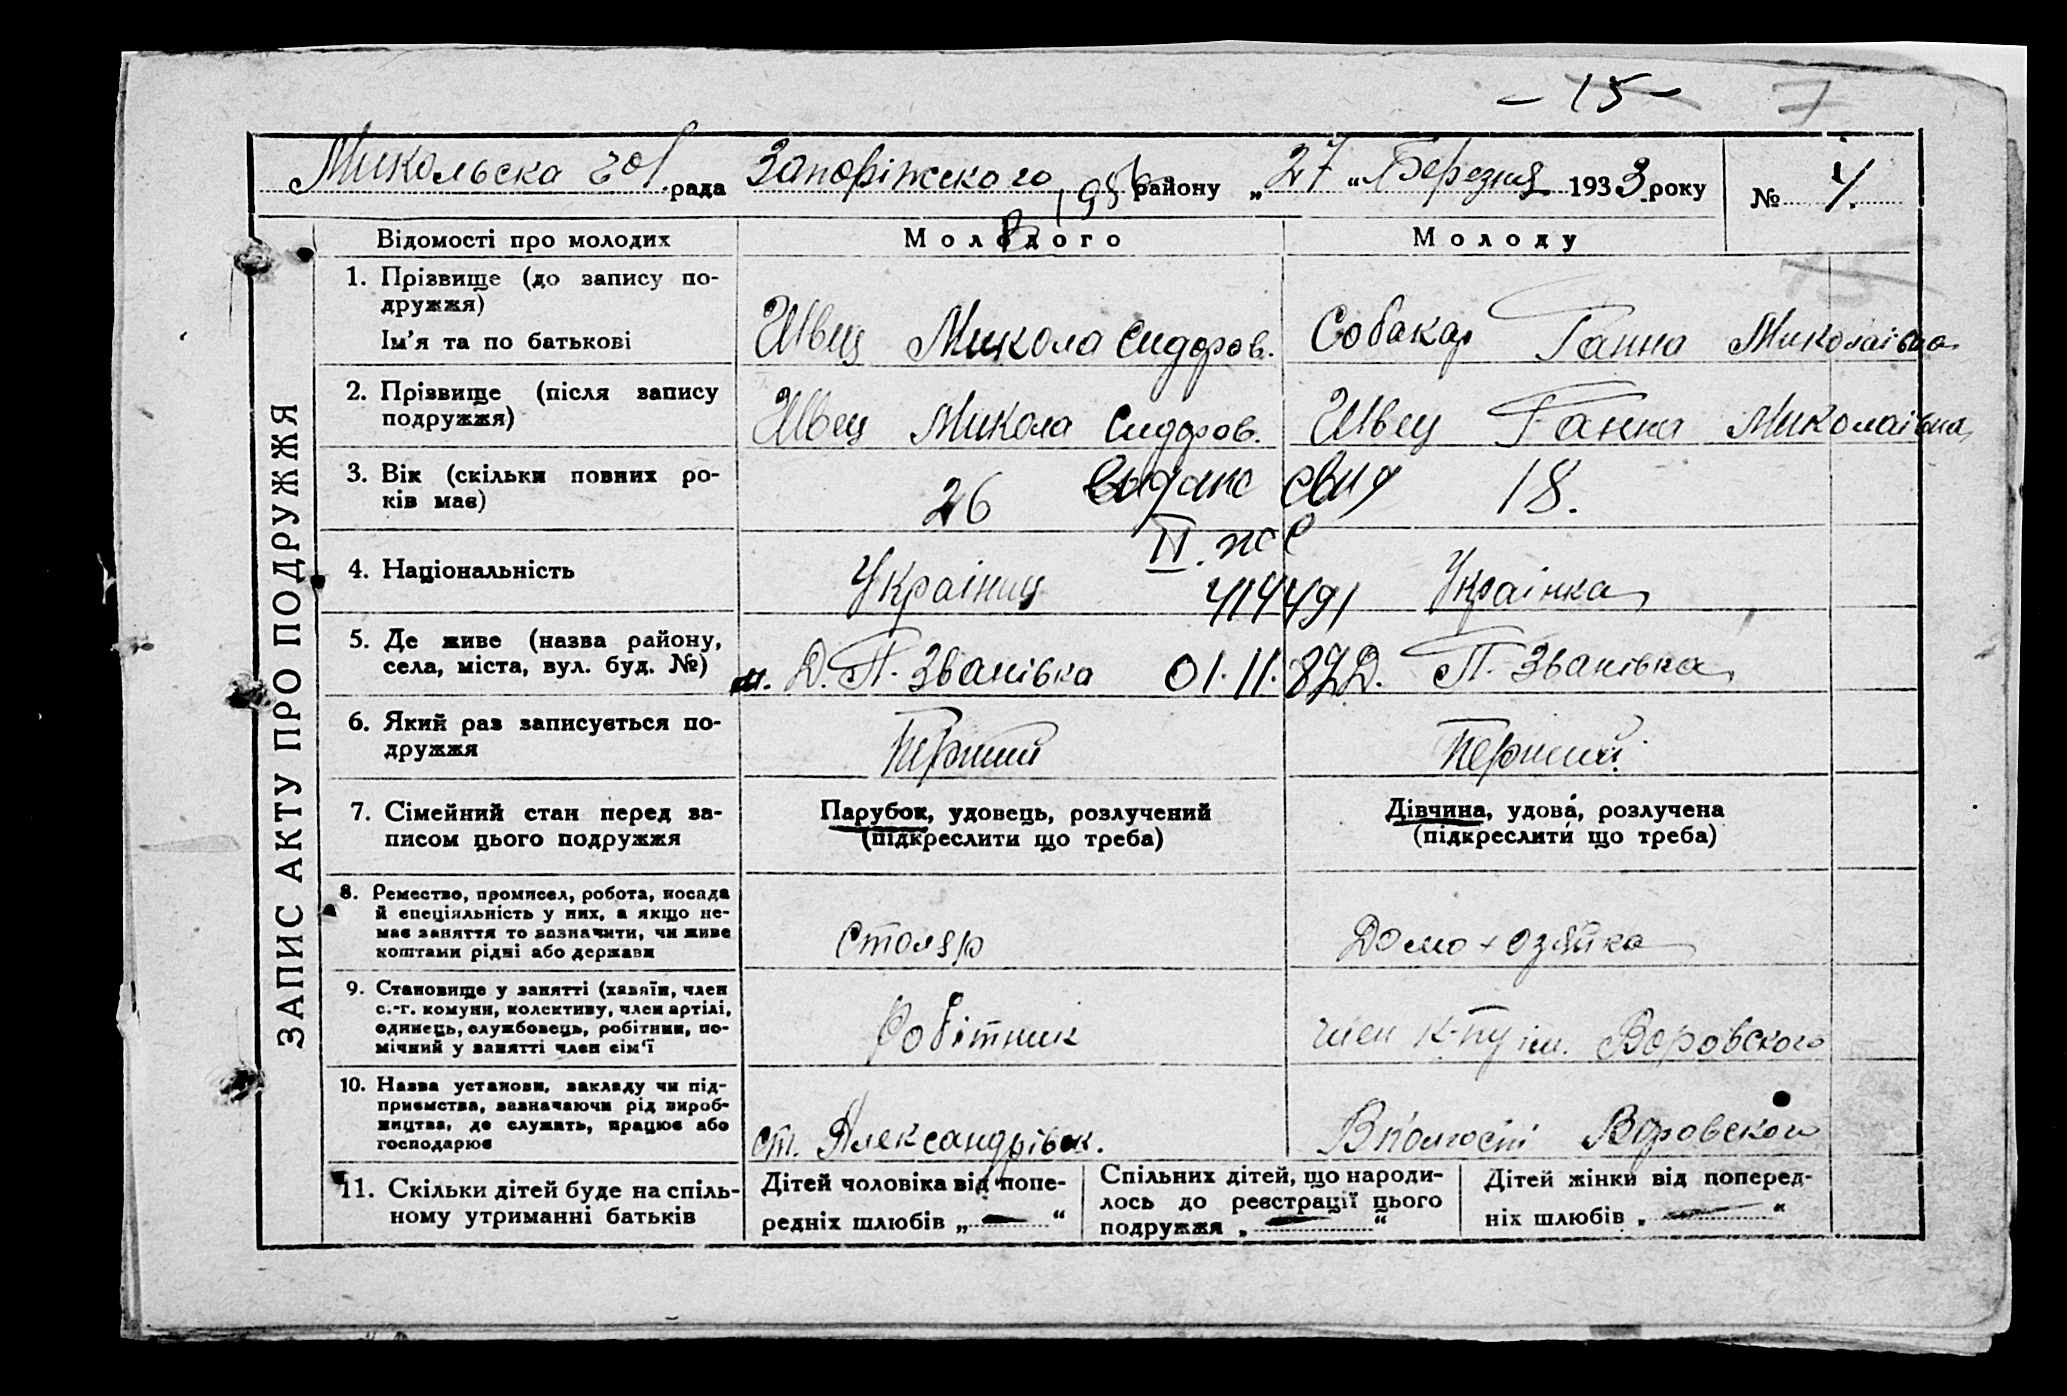 – 15 – 7
Микольска рада Запоріжского району „27“ Березня 1933 року № 4.
Відомості про молодих Молодого Молоду
1. Прізвище (до запису по-
дружжя)
Ім'я та по батькові
Швец Микола Сидоров. Собакар Ганна Миколаівна.
2. Прізвище (після запису
подружжя)
Швец Микола Сидоров. Швец Ганна Миколаівна,
3. Вік (скільки повних ро-
ків має)
26 18.
видано свид
II. жс
414491
01.11.87
4. Національність
Украінец Украінка
5. Де живе (назва району,
села, міста, вул. буд. №)
Д. П. Званівка Д. П. Званівка
6. Який раз записується по-
дружжя
Перший Перший
7. Сімейний стан перед за-
писом цього подружжя
Парубок, удовець, розлучений
(підкреслити що треба)
Дівчина, удова, розлучена
(підкреслити що треба)
8. Ремество, промисел, робота, посада
й спеціяльність у них, а якщо не-
має заняття то зазначити, чи живе
коштами рідні або держави
Столяр Домохозяйка
9. Становище у занятті (хазяїн, член
с.-г. комуни, колективу, член артілі,
одинець, службовець, робітник, по-
мічний у занятті член сім'ї
Робітник член к-пу ім. Воровского
10. Назва установи, закладу чи під-
приємства, зазначаючи рід вироб-
ництва, де служить, працює або
господарює
ст. Александрівск. Воровского
11. Скільки дітей буде на спіль-
ному утриманні батьків
Дітей чоловіка від попе-
редніх шлюбів „ — “
Спільних дітей, що народи-
лось до реєстрації цього
подружжя „ — “
Дітей жінки від поперед-
ніх шлюбів „ — “
ЗАПИС АКТУ ПРО ПОДРУЖЖЯ